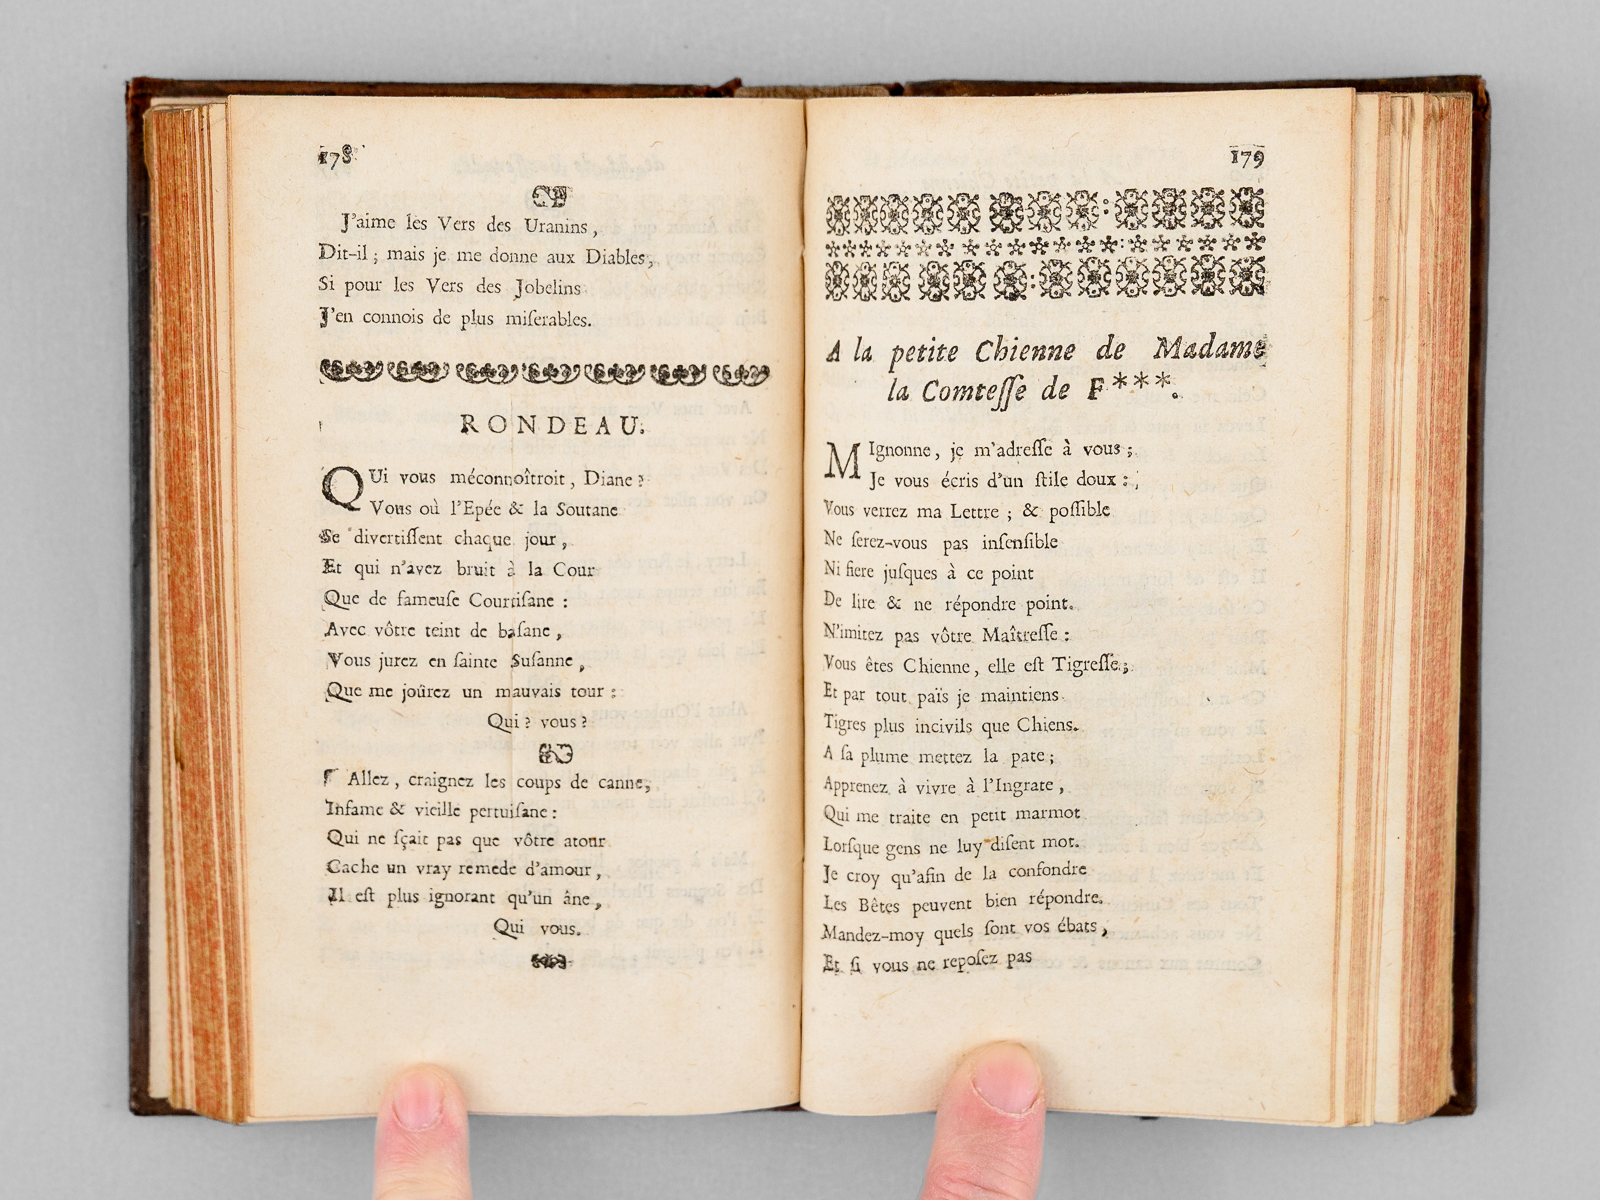 178
J'aime les Vers des Uranins,
Dit-il ; mais je me donne aux Diables,
Si pour les Vers des Jobelins
J'en connois de plus miſerables.
RONDEAU.
QUi vous méconnoîtroit, Diane ?
Vous où l'Epée & la Soutane
Se divertiſſent chaque jour,
Et qui n'avez bruit à la Cour
Que de fameuſe Courtiſane :
Avec vôtre teint de baſane,
Vous jurez en ſainte Suſanne,
Que me joûrez un mauvais tour :
Qui ? vous ?
Allez, craignez les coups de canne,
Infame & vieille pertuiſane :
Qui ne ſçait pas que vôtre atour
Cache un vray remede d'amour,
Il eſt plus ignorant qu'un âne,
Qui vous.
179
A la petite Chienne de Madame
la Comteſſe de F***.
MIgnonne, je m'adreſſe à vous ;
Je vous écris d'un ſtile doux :
Vous verrez ma Lettre ; & poſſible
Ne ſerez-vous pas inſenſible
Ni fiere juſques à ce point
De lire & ne répondre point.
N'imitez pas vôtre Maîtreſſe :
Vous êtes Chienne, elle eſt Tigreſſe ;
Et par tout païs je maintiens
Tigres plus incivils que Chiens.
A ſa plume mettez la pate ;
Apprenez à vivre à l'Ingrate,
Qui me traite en petit marmot
Lorſque gens ne luy diſent mot.
Je croy qu'afin de la confondre
Les Bêtes peuvent bien répondre.
Mandez-moy quels ſont vos ébats,
Et ſi vous ne repoſez pas